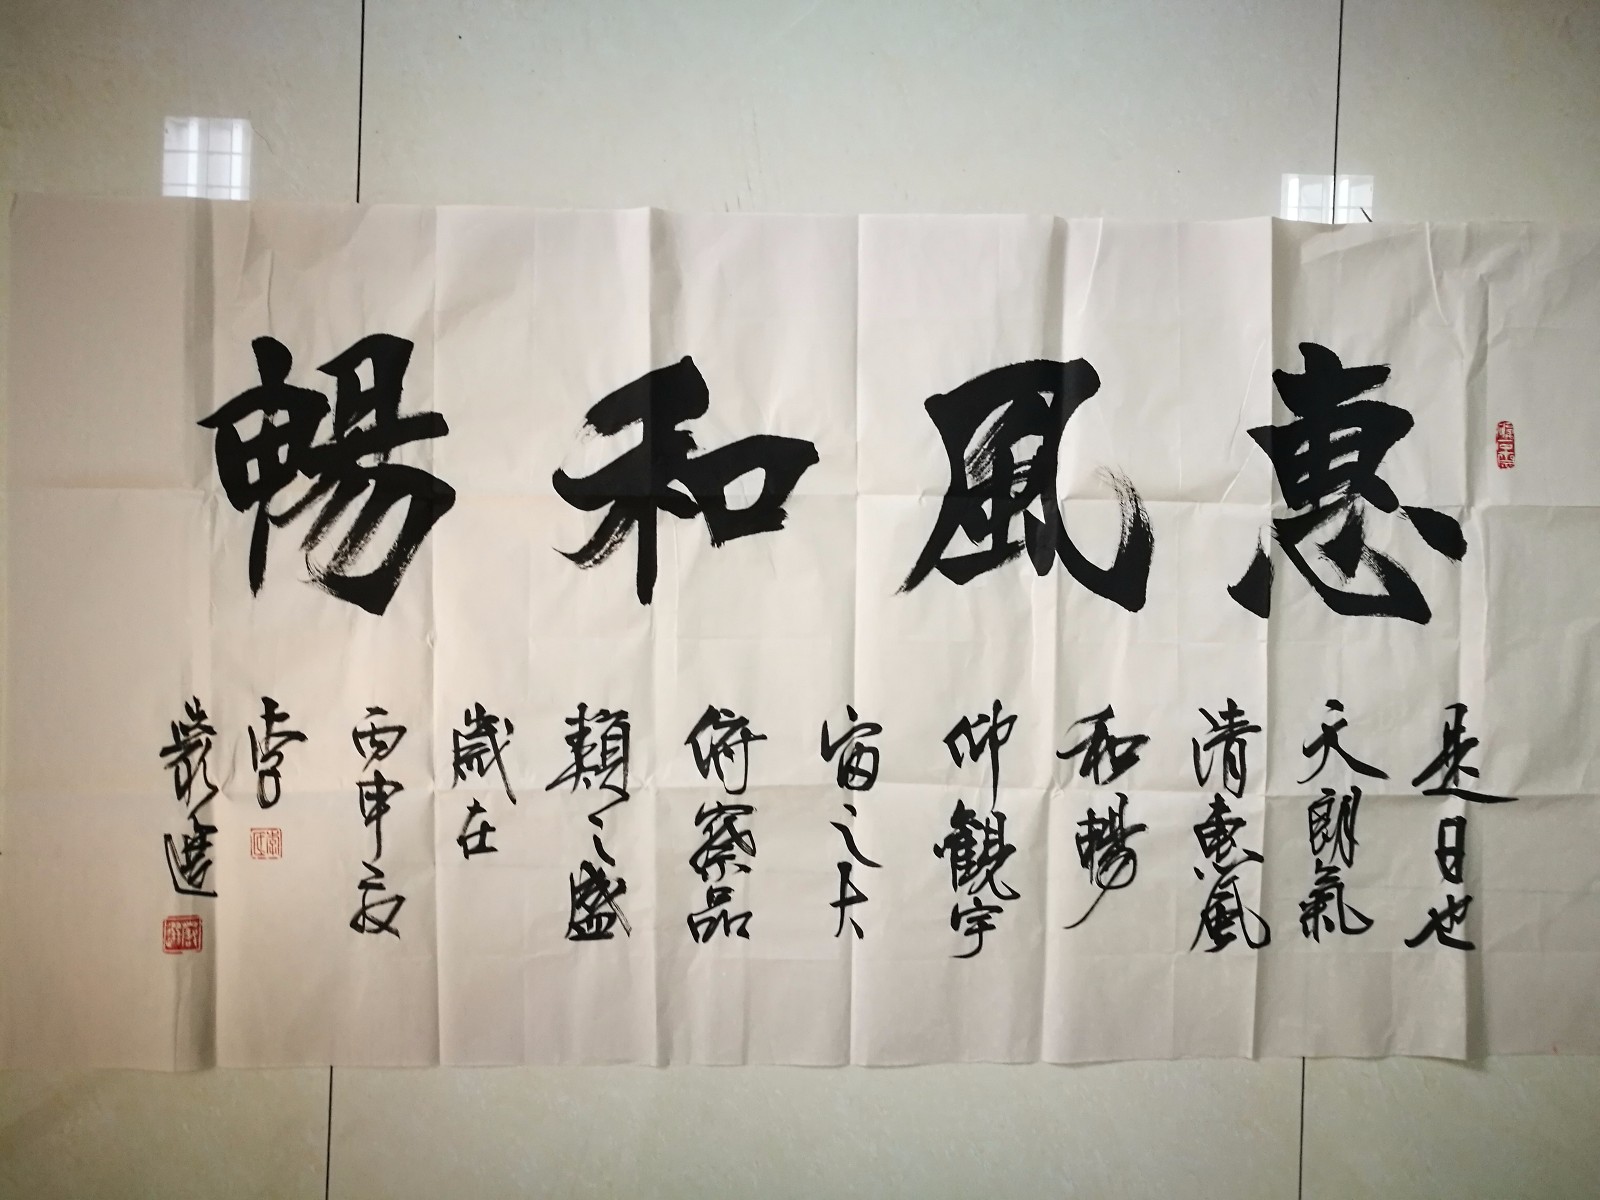 惠風和暢
是日也
天朗氣
清惠風
和暢
仰觀宇
宙之大
俯察品
類之盛
歲在
丙申秋
李